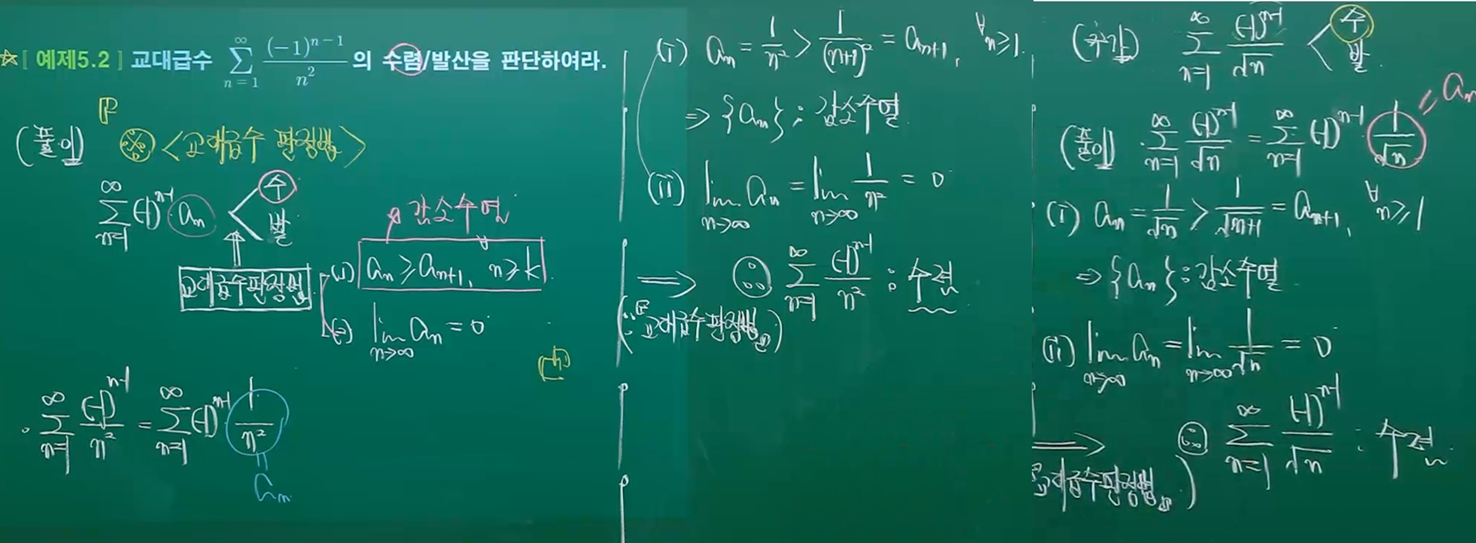 ☆[ 예제5.2 ] 교대급수 \sum_{n=1}^{\infty} \frac{(-1)^{n-1}}{n^2} 의 수렴/발산을 판단하여라.
(풀이) ※ <교대급수 판정법>
\sum_{n=1}^{\infty} (-1)^{n-1} a_n < 수
발
교대급수판정법
감소수열
(i) a_n ≥ a_{n+1}, ∀n ≥ k
(ii) \lim_{n→∞} a_n = 0
· \sum_{n=1}^{\infty} \frac{(-1)^{n-1}}{n^2} = \sum_{n=1}^{\infty} (-1)^{n-1} · \frac{1}{n^2}
= a_n
(i) a_n = \frac{1}{n^2} > \frac{1}{(n+1)^2} = a_{n+1}, ∀n ≥ 1.
⇒ {a_n} : 감소수열.
(ii) \lim_{n→∞} a_n = \lim_{n→∞} \frac{1}{n^2} = 0
⟹ ∴ \sum_{n=1}^{\infty} \frac{(-1)^{n-1}}{n^2} : 수렴
(∵ 교대급수판정법)
(추가) \sum_{n=1}^{\infty} \frac{(-1)^{n-1}}{\sqrt{n}} < 수
발
(풀이) · \sum_{n=1}^{\infty} \frac{(-1)^{n-1}}{\sqrt{n}} = \sum_{n=1}^{\infty} (-1)^{n-1} · \frac{1}{\sqrt{n}} = a_n
(i) a_n = \frac{1}{\sqrt{n}} > \frac{1}{\sqrt{n+1}} = a_{n+1}, ∀n ≥ 1
⇒ {a_n} : 감소수열
(ii) \lim_{n→∞} a_n = \lim_{n→∞} \frac{1}{\sqrt{n}} = 0
⟹ ∴ \sum_{n=1}^{\infty} \frac{(-1)^{n-1}}{\sqrt{n}} : 수렴
교대급수판정법)